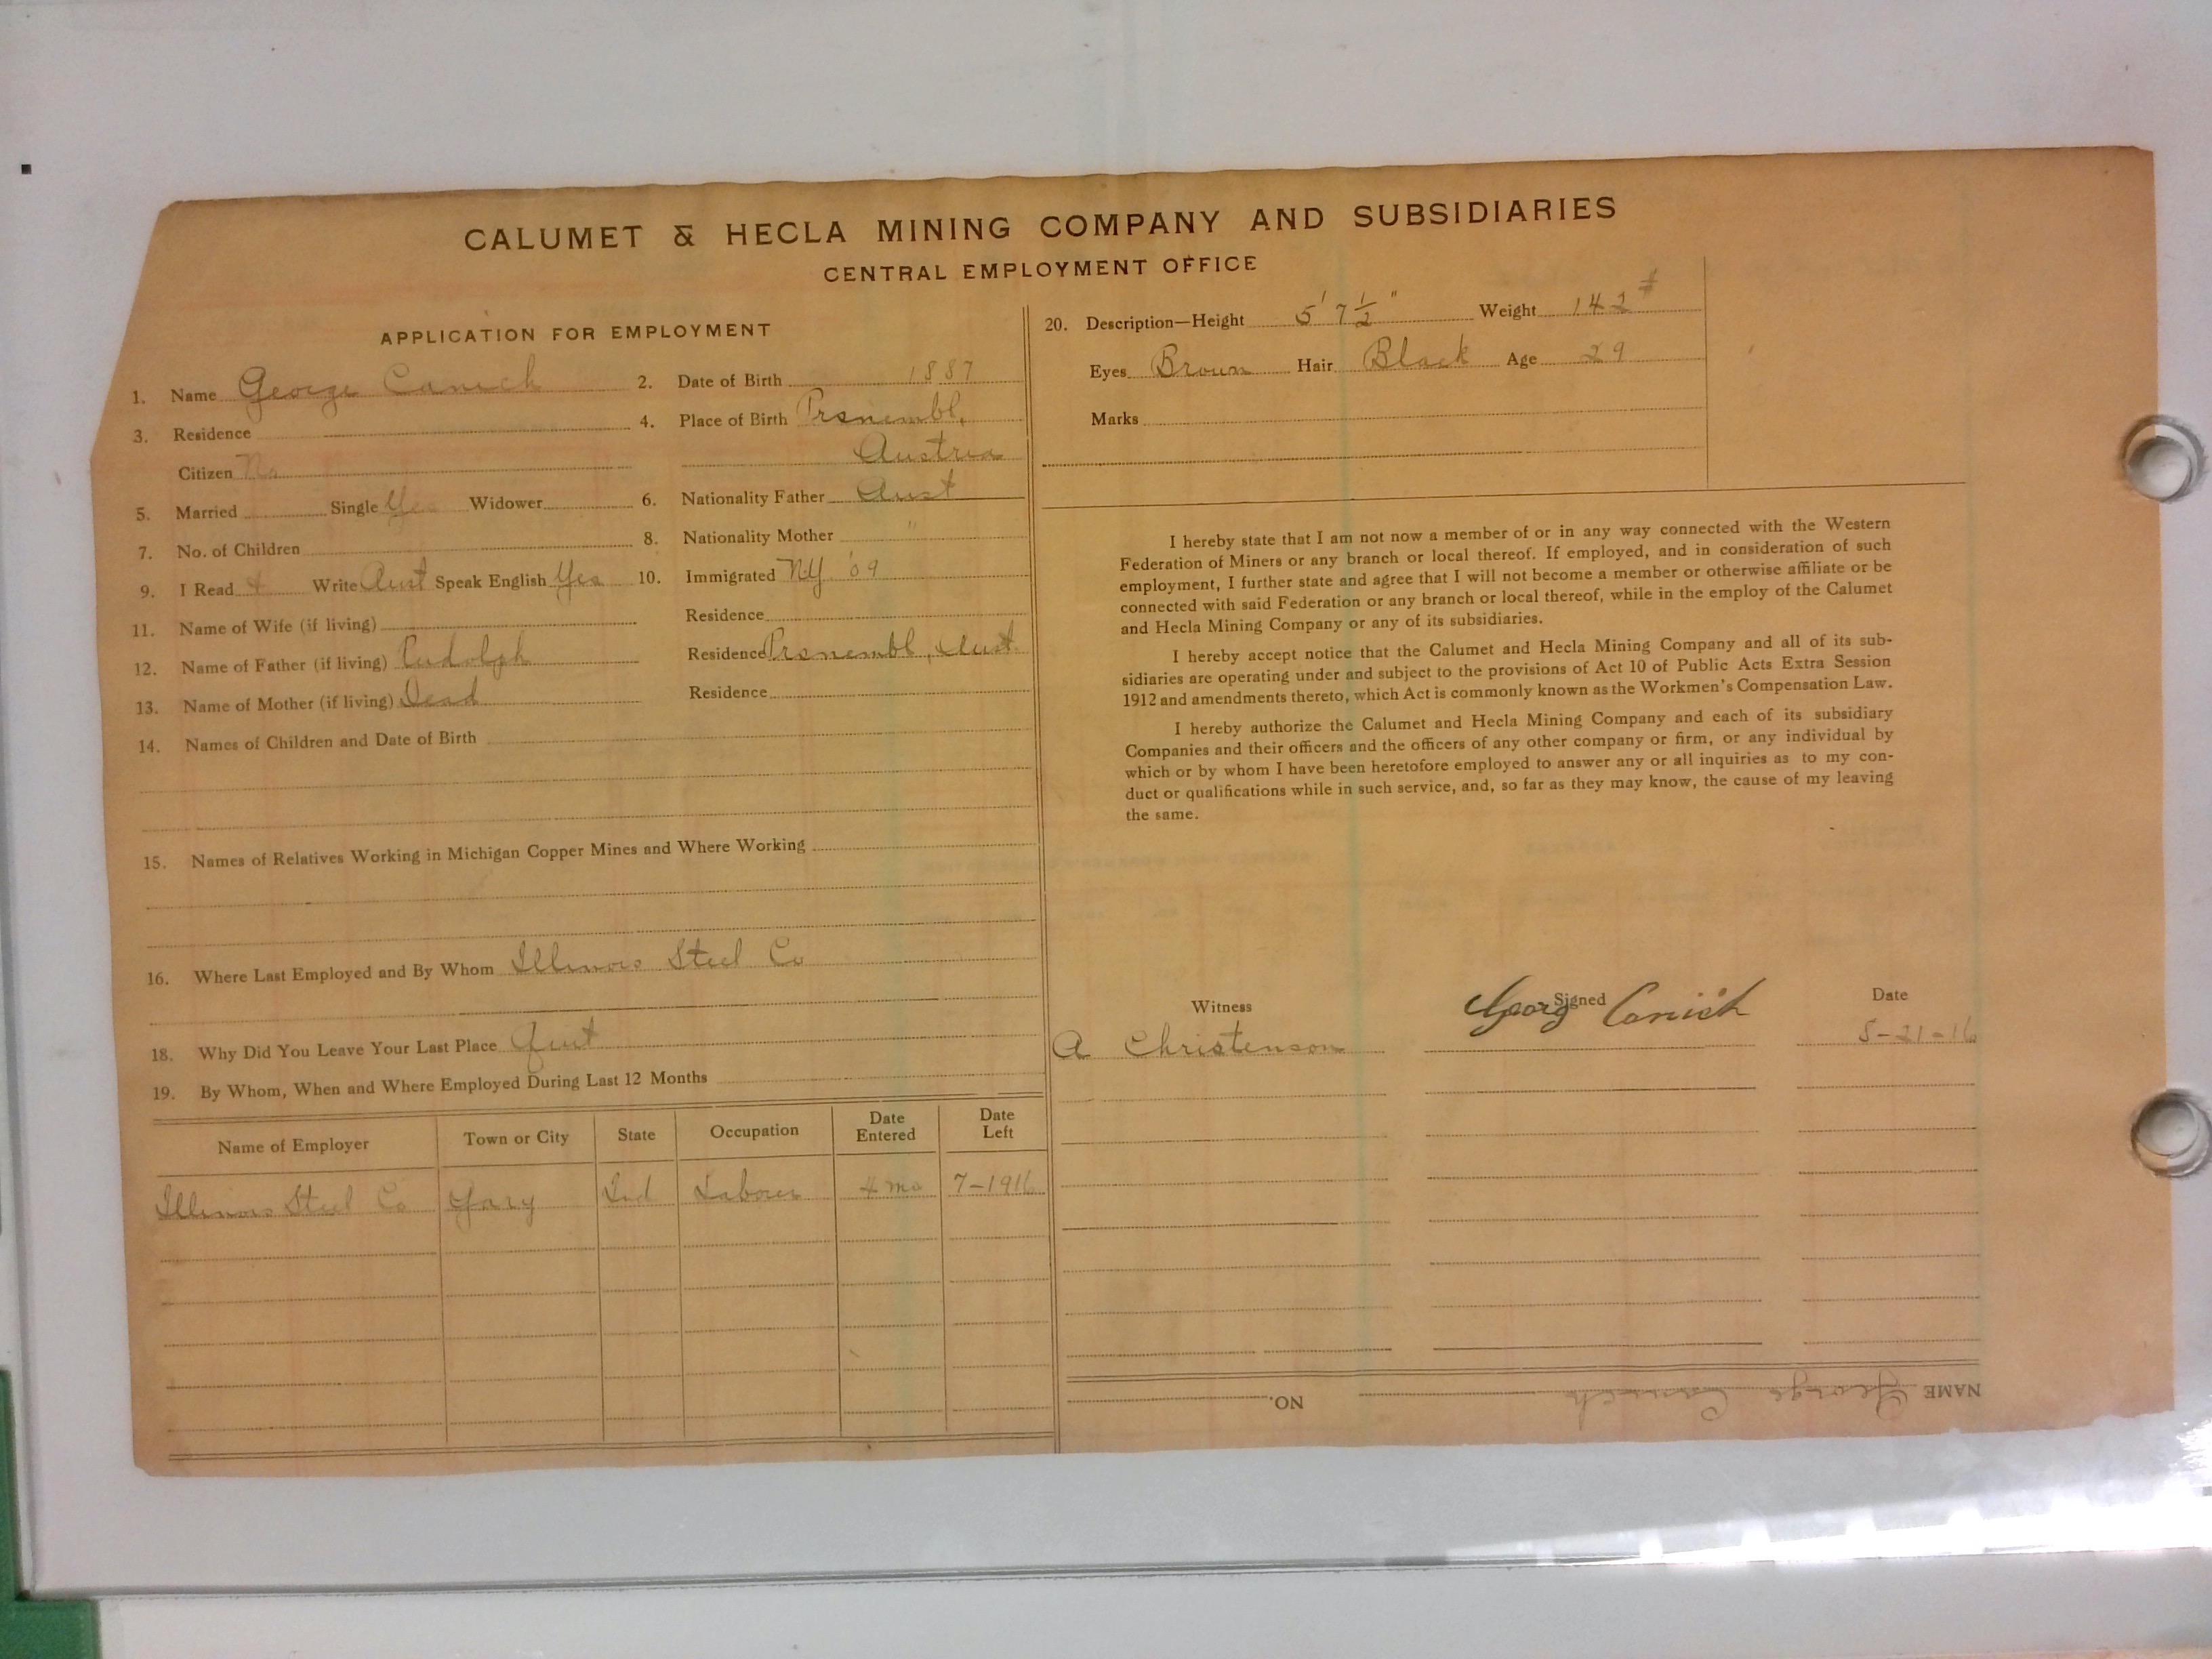 CALUMET & HECLA MINING COMPANY AND SUBSIDIARIES
CENTRAL EMPLOYMENT OFFICE
APPLICATION FOR EMPLOYMENT
1. Name George Canich 2. Date of Birth 1887
3. Residence 4. Place of Birth Prsnembl,
Citizen No Austria
5. Married Single Yes Widower 6. Nationality Father Aust
7. No. of Children 8. Nationality Mother "
9. I Read + Write Aust Speak English Yes 10. Immigrated NY '09
11. Name of Wife (if living) Residence
12. Name of Father (if living) Rudolph Residence Prsnembl, Aust.
13. Name of Mother (if living) Dead Residence
14. Names of Children and Date of Birth
15. Names of Relatives Working in Michigan Copper Mines and Where Working
16. Where Last Employed and By Whom Illinois Steel Co
18. Why Did You Leave Your Last Place Quit
19. By Whom, When and Where Employed During Last 12 Months
Name of Employer Town or City State Occupation Date Entered Date Left
Illinois Steel Co Gary Ind Laborer 4 mo 7-1916
20. Description—Height 5' 7 1/2" Weight 142 #
Eyes Brown Hair Black Age 29
Marks
I hereby state that I am not now a member of or in any way connected with the Western
Federation of Miners or any branch or local thereof. If employed, and in consideration of such
employment, I further state and agree that I will not become a member or otherwise affiliate or be
connected with said Federation or any branch or local thereof, while in the employ of the Calumet
and Hecla Mining Company or any of its subsidiaries.
I hereby accept notice that the Calumet and Hecla Mining Company and all of its sub-
sidiaries are operating under and subject to the provisions of Act 10 of Public Acts Extra Session
1912 and amendments thereto, which Act is commonly known as the Workmen's Compensation Law.
I hereby authorize the Calumet and Hecla Mining Company and each of its subsidiary
Companies and their officers and the officers of any other company or firm, or any individual by
which or by whom I have been heretofore employed to answer any or all inquiries as to my con-
duct or qualifications while in such service, and, so far as they may know, the cause of my leaving
the same.
Witness Signed Date
A Christenson Georg Canich 8-21-16
NAME George Canich NO.